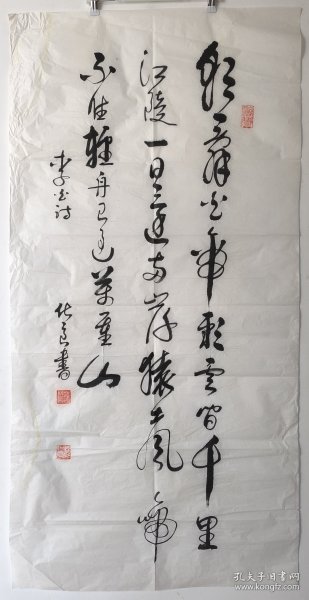 朝辞白帝彩雲间千里
江陵一日还两岸猿声啼
不住轻舟已过万重山
李白诗
良書
孔夫子旧书网
www.kongfz.com